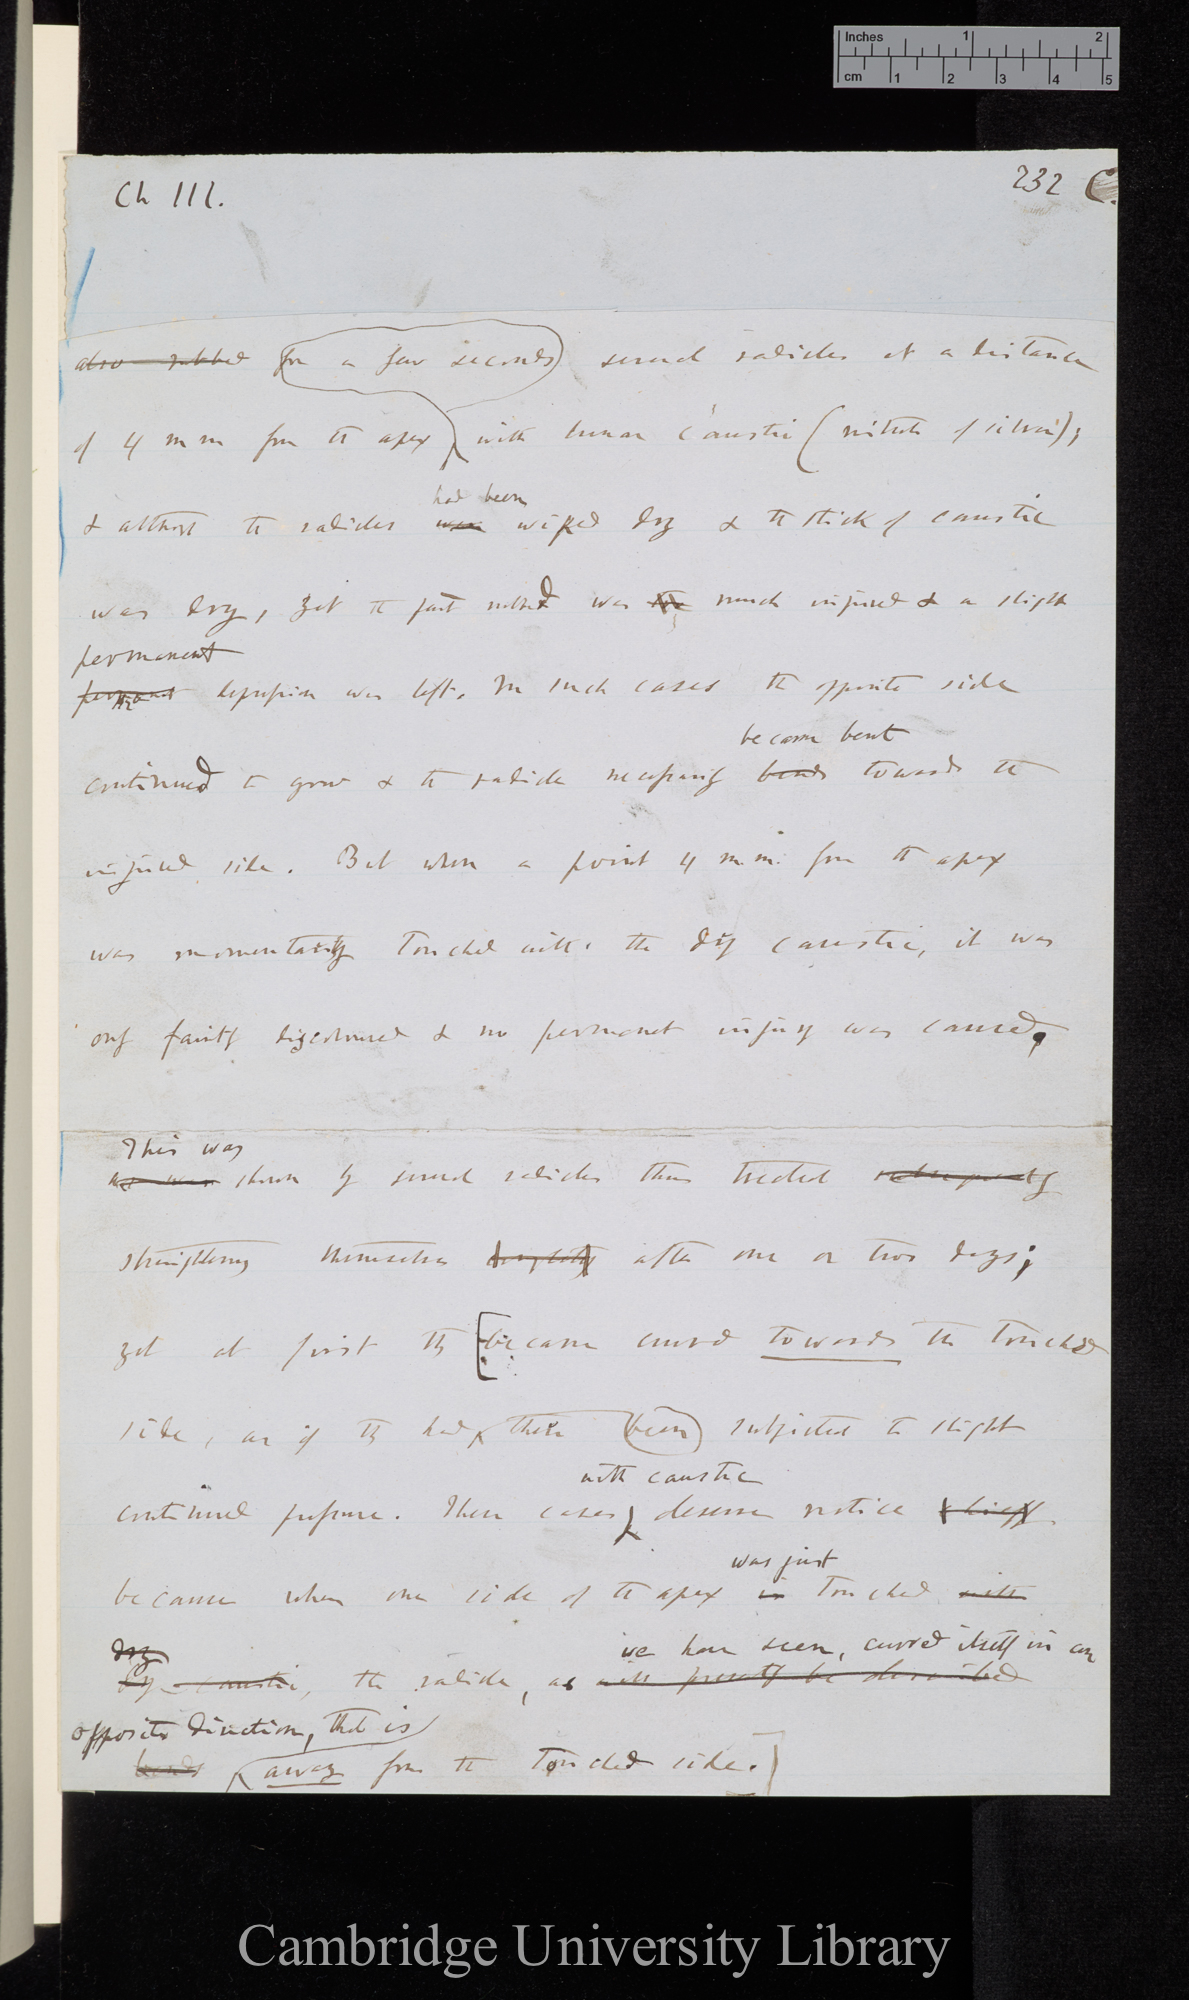 Inches 1 2
cm 1 2 3 4 5
Ch III.
232 C.
also rubbed for a few seconds several radicles at a distance
of 4 m m from the apex with lunar caustic (nitrate of silver);
had been
& although the radicles were wiped dry & the stick of caustic
was dry, yet the part rubbed was much injured & a slight
permanent
depression was left. In such cases the opposite side
became bent
continued to grow & the radicle necessarily bends towards the
injured side. But when a point 4 m.m. from the apex
was momentarily touched with the dry caustic, it was
only faintly discoloured & no permanent injury was caused.
This was
as was shown by several radicles thus treated subsequently
straightening themselves after one or two days;
yet at first they [became curved towards the touched
side, as if they had there been subjected to slight
with caustic
continued pressure. These cases deserve notice briefly
was just
because when one side of the apex is touched with
dry
we have seen, curved itself in an
dry caustic, the radicle, as will presently be described
opposite direction, that is
bends away from the touched side.]
Cambridge University Library